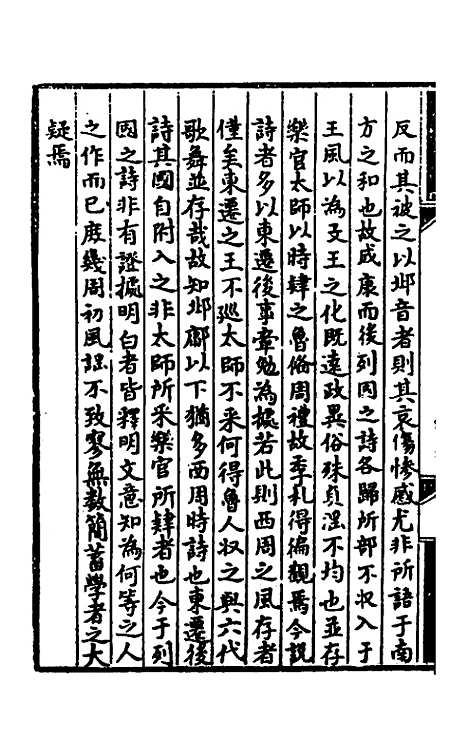 反而其被之以邶音者則其哀傷慘慼尤非所語于南
方之和也故成康而後列囯之詩各歸所部不収入于
王風以為文王之化既遠政異俗殊貞淫不均也並存
樂官太師以時肄之魯俗周禮故季札得徧觀焉今説
詩者多以東遷後事牽勉為據若此則西周之風存者
僅矣東遷之王不廵太師不采何得魯人収之與六代
歌舞並存哉故知邶鄘以下猶多西周時詩也東遷後
詩其國自附入之非太師所采樂官所肄者也今于列
囯之詩非有證據明白者皆釋明文意知為何等之人
之作而已庶幾周初風謡不致寥無数簡蓄學者之大
疑焉